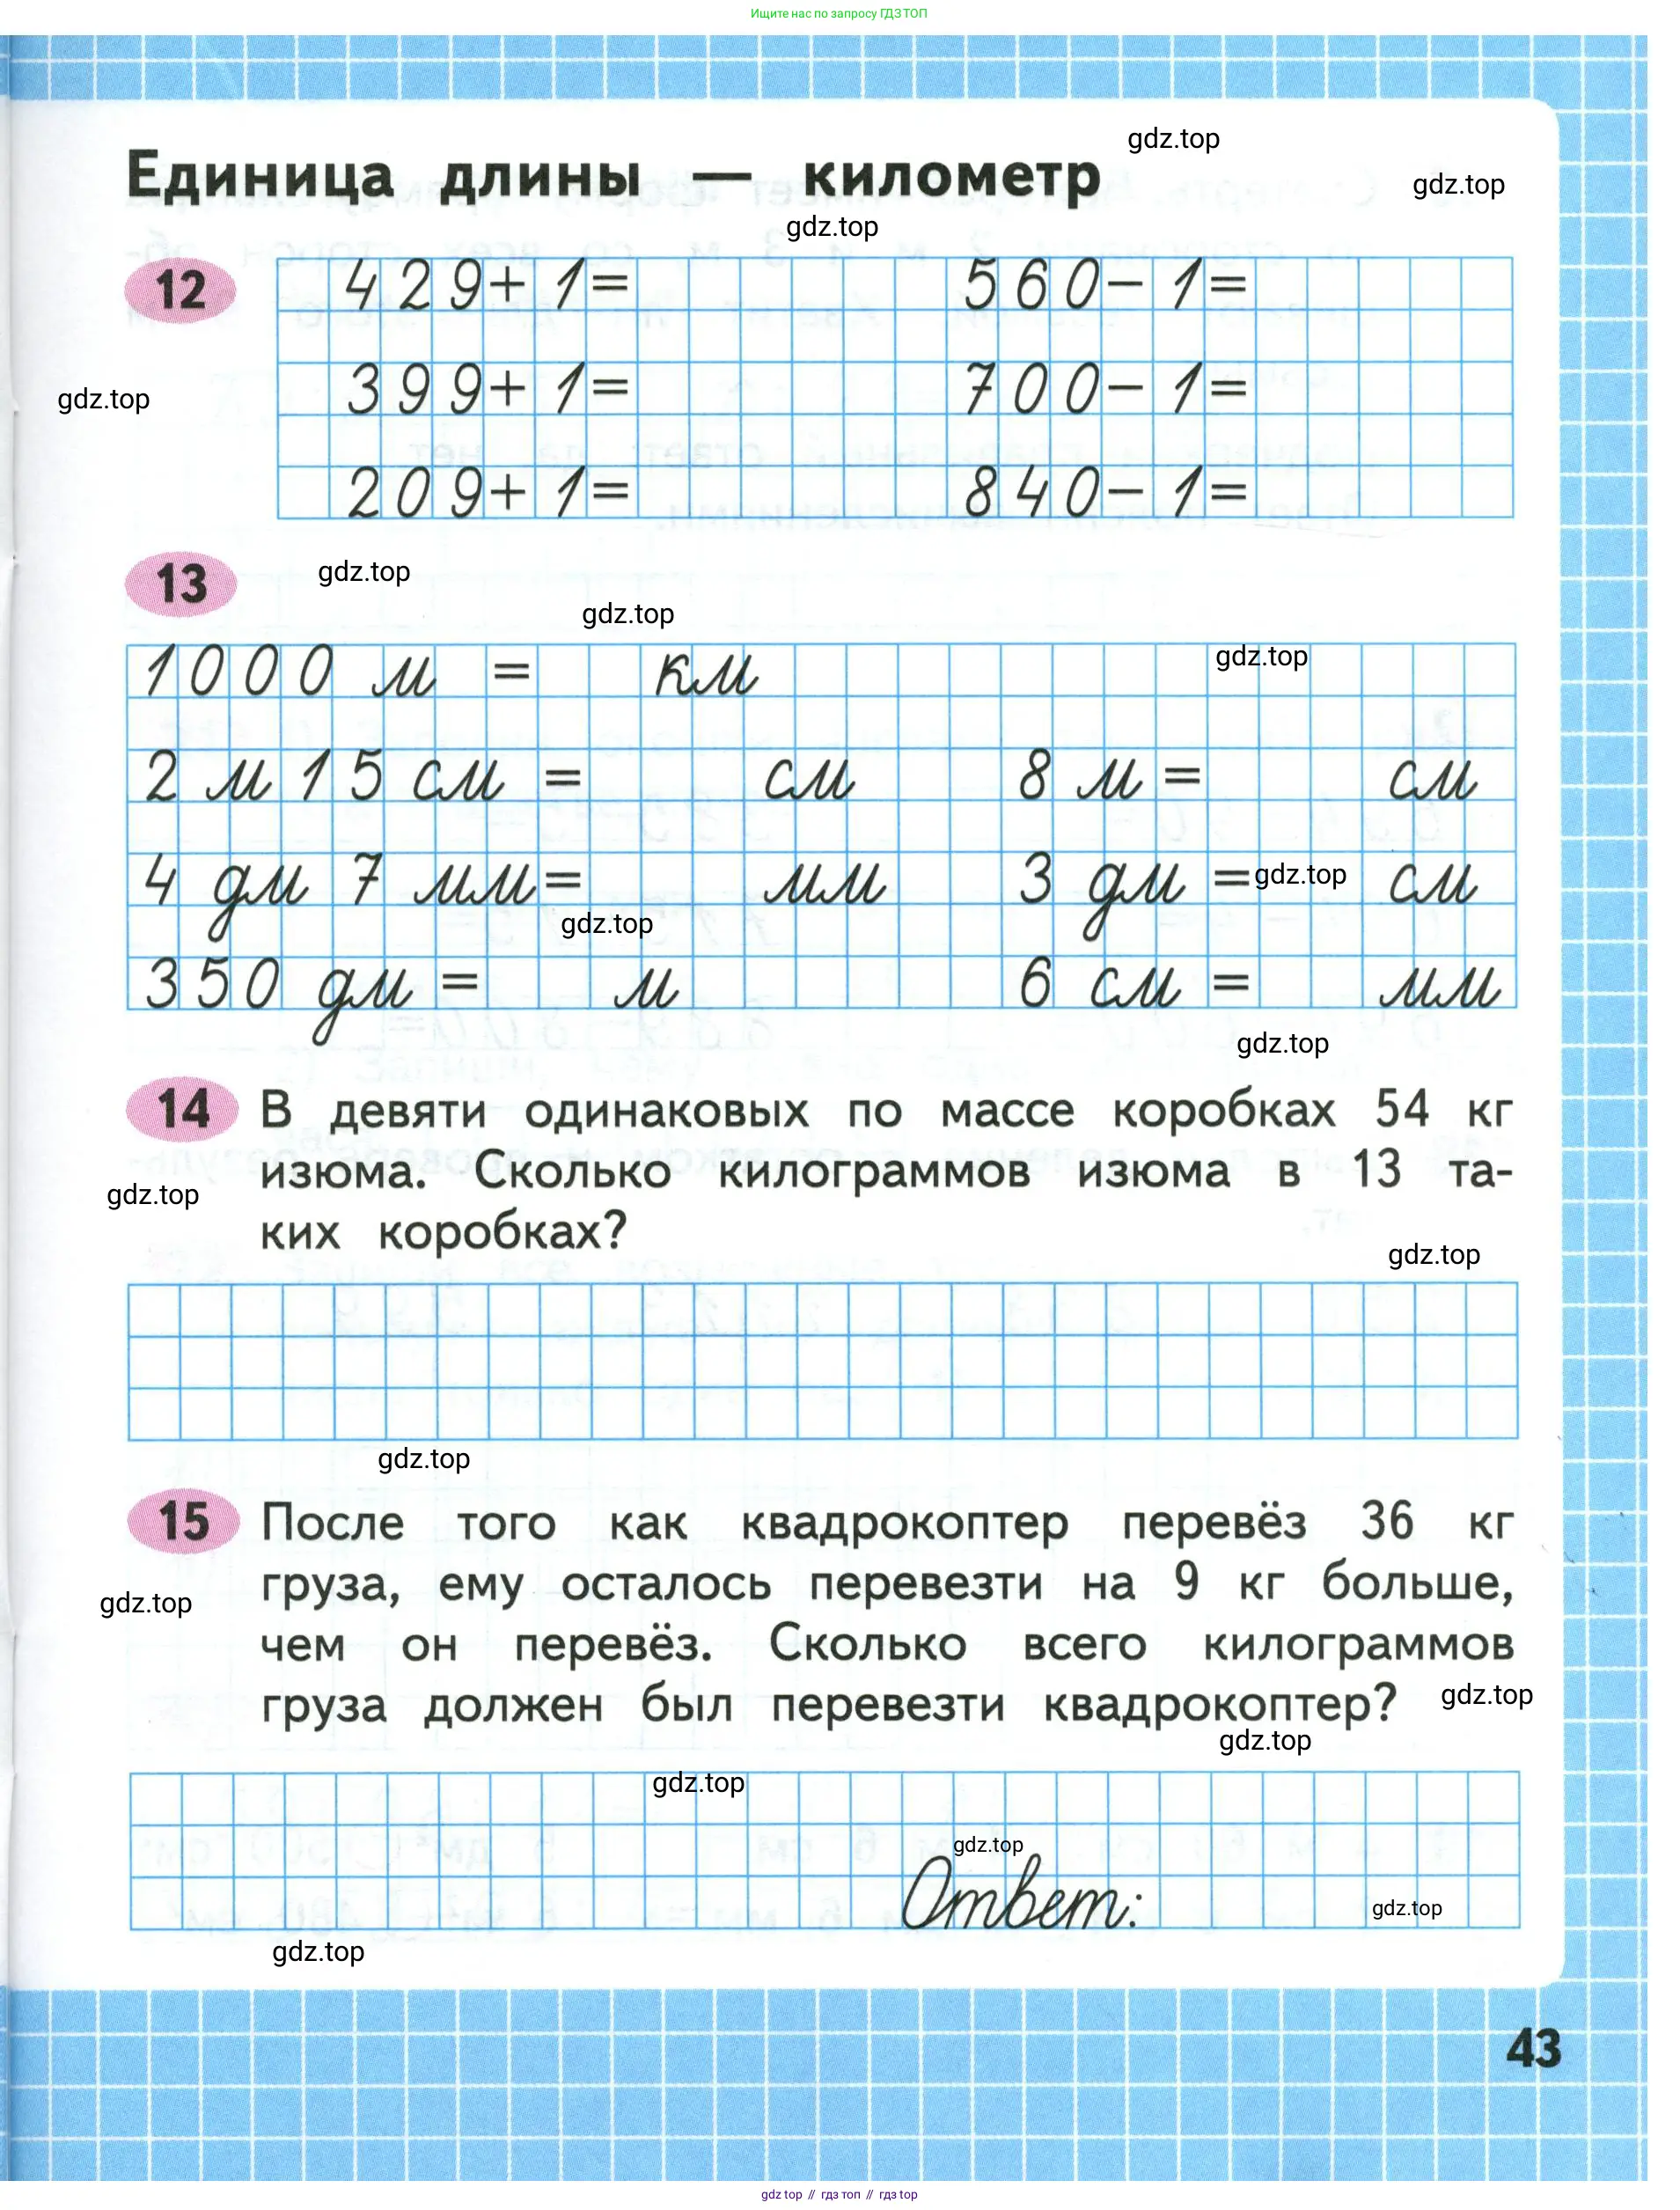 Ищите нас по запросу ГДЗ ТОП
gdz.top
Единица длины — километр
gdz.top
gdz.top
12
429+1=
560-1=
gdz.top
399+1=
700-1=
209+1=
840-1=
13
gdz.top
gdz.top
gdz.top
1000 м = км
2 м 15 см = см
8 м = см
4 дм 7 мм = мм
3 дм = см
gdz.top
gdz.top
350 дм = м
6 см = мм
gdz.top
14 В девяти одинаковых по массе коробках 54 кг
изюма. Сколько килограммов изюма в 13 та-
gdz.top
ких коробках?
gdz.top
gdz.top
15 После того как квадрокоптер перевёз 36 кг
груза, ему осталось перевезти на 9 кг больше,
gdz.top
чем он перевёз. Сколько всего килограммов
груза должен был перевезти квадрокоптер?
gdz.top
gdz.top
gdz.top
gdz.top
Ответ:
gdz.top
gdz.top
43
gdz top // гдз топ // гдз top